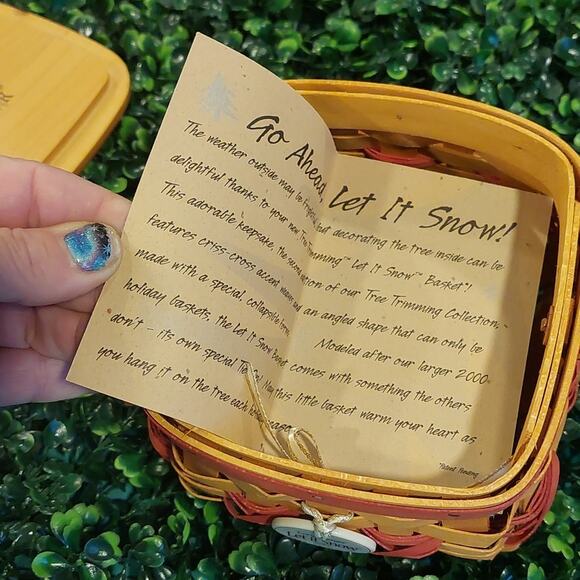 Go Ahead, Let It Snow!
The weather outside may be frightful, but decorating the tree inside can be
delightful thanks to your new Tree Trimming™ Let It Snow™ Basket!
This adorable keepsake, the second edition of our Tree Trimming Collection,
features criss-cross accent weave and an angled shape that can only be
made with a special, collapsible form. Modeled after our larger 2000
holiday baskets, the Let It Snow Basket comes with something the others
don't – its own special Tie-On. May this little basket warm your heart as
you hang it on the tree each season.
*Patent Pending
Let It Snow